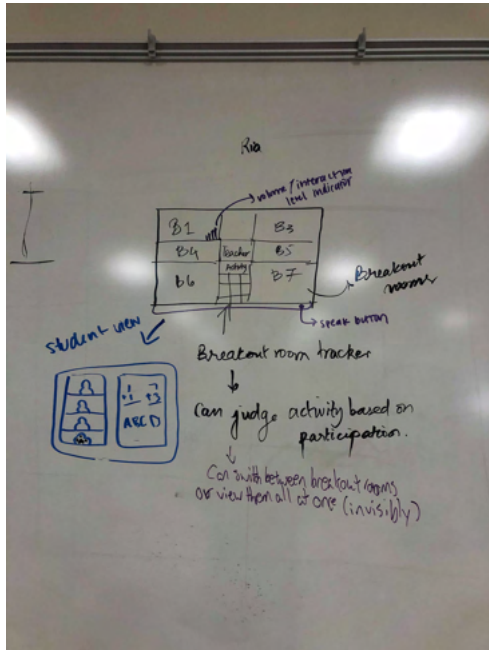 Ria
volume/interaction
level indicator
B1
B3
B4
Teacher
B5
Activity
B6
B7
Breakout
rooms
speak button
student view
Breakout room tracker
ABCD
Can judge activity based on
participation.
Can swith between breakout rooms
or view them all at one (invisibly)